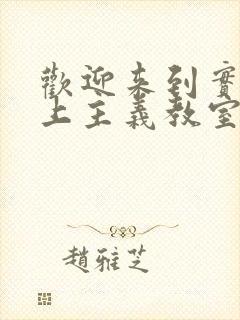 歡迎來到實
上主義教室
趙雅芝